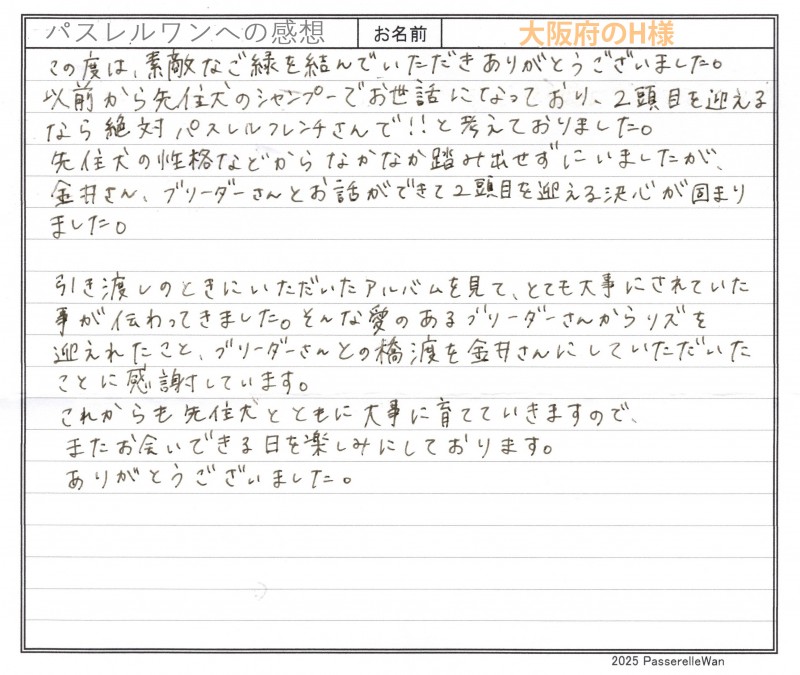 パスレルワンへの感想 お名前 大阪府のH様
この度は、素敵なご縁を結んでいただきありがとうございました。
以前から先住犬のシャンプーでお世話になっており、2頭目を迎える
なら絶対パスレルフレンチさんで!!と考えておりました。
先住犬の性格などからなかなか踏み出せずにいましたが、
金井さん、ブリーダーさんとお話ができて2頭目を迎える決心が固まり
ました。
引き渡しのときにいただいたアルバムを見て、とても大事にされていた
事が伝わってきました。そんな愛のあるブリーダーさんからリズを
迎えれたこと、ブリーダーさんとの橋渡を金井さんにしていただいた
ことに感謝しています。
これからも先住犬とともに大事に育てていきますので、
またお会いできる日を楽しみにしております。
ありがとうございました。
2025 PasserelleWan